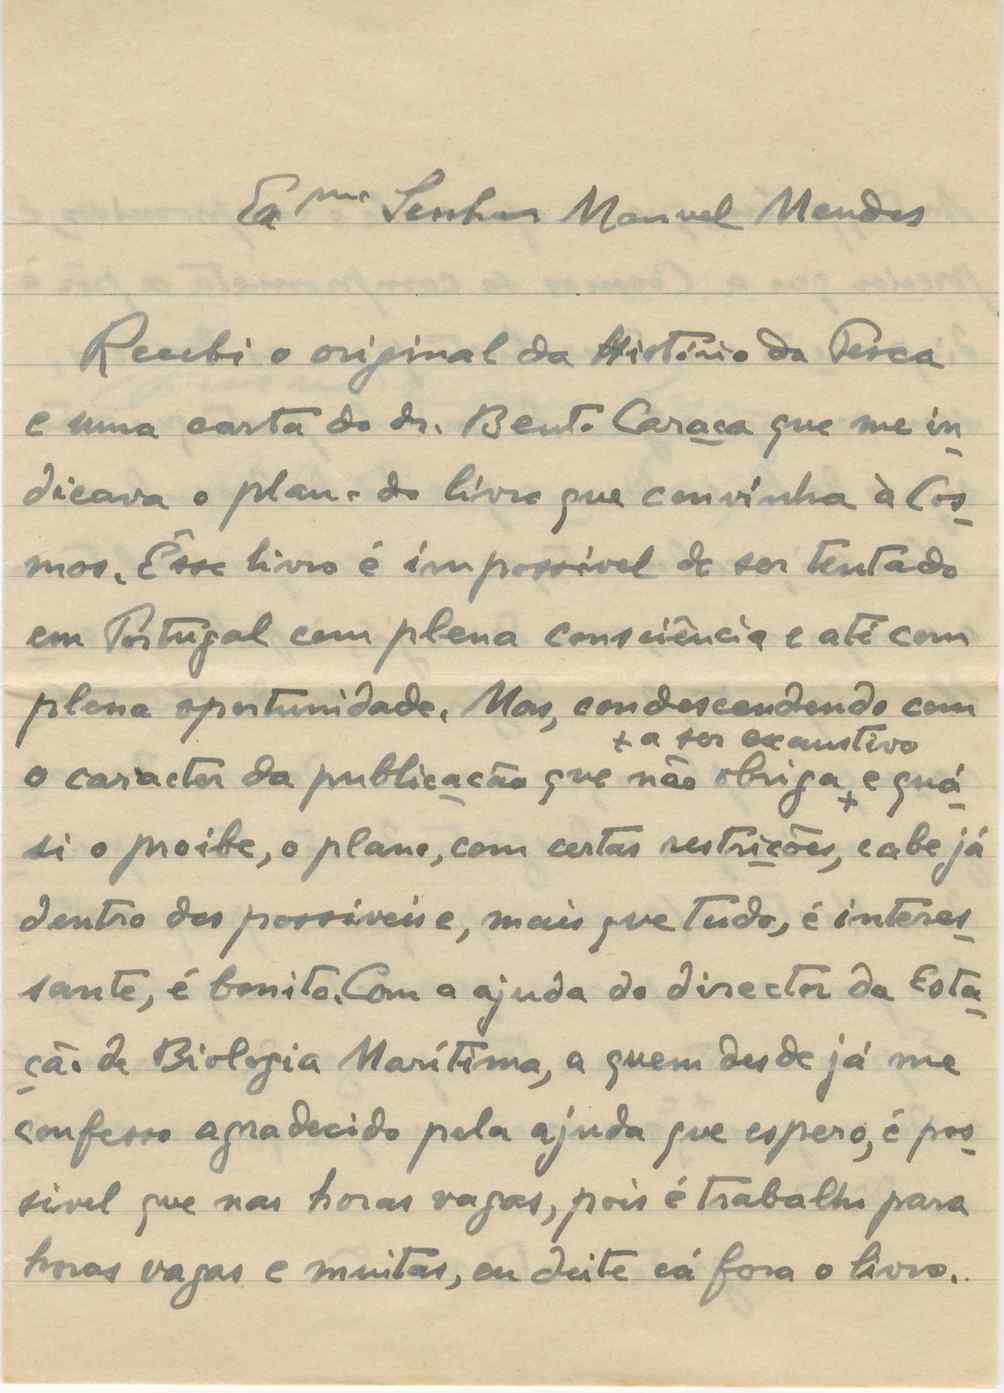 Exmo Senhor Manuel Mendes
Recebi o original da História da Pesca
e uma carta do dr. Bento Caraça que me in-
dicava o plano do livro que convinha à Cos-
mos. Êsse livro é impossível de ser tentado
em Portugal com plena consciência e até com
plena oportunidade. Mas, condescendendo com
+ a ser exaustivo
o caracter da publicação que não obriga + e quá-
si o proibe, o plano, com certas restrições, cabe já
dentro dos possíveis e, mais que tudo, é interes-
sante, é bonito. Com a ajuda do director da Esta-
ção de Biologia Marítima, a quem desde já me
confesso agradecido pela ajuda que espero, é pos-
sivel que nas horas vagas, pois é trabalho para
horas vagas e muitas, eu deite cá fora o livro.